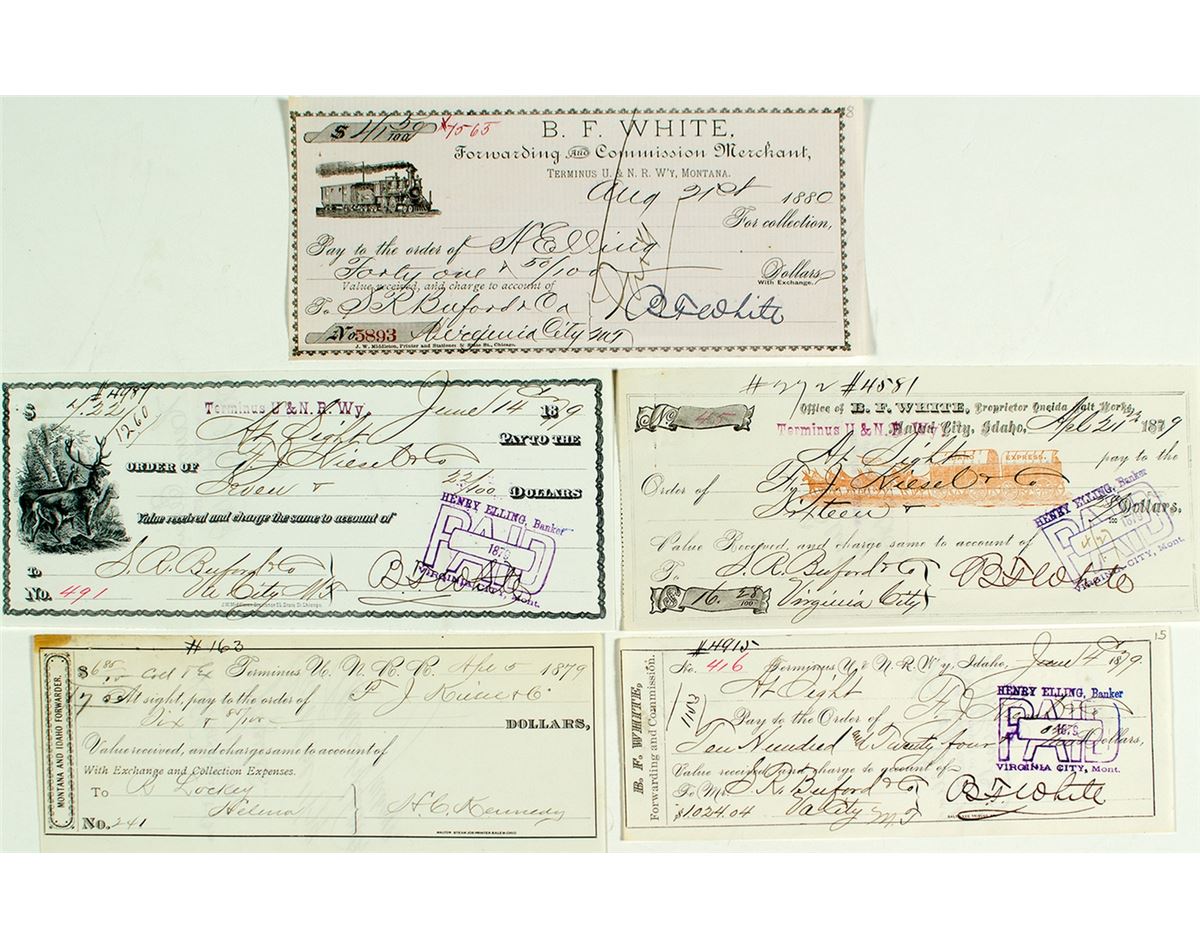 $ 41 50/100 #4565
8
B. F. WHITE,
Forwarding AND Commission Merchant,
TERMINUS U. & N. R. W'Y, MONTANA.
Aug 21st 1880
For collection,
Pay to the order of H Elling
Forty one & 50/100 Dollars
With Exchange.
Value received, and charge to account of
To S R Buford & Co B F White
No 5893 Virginia City MT
J. W. Middleton, Printer and Stationer, State St., Chicago.
#4987
$ 7.22 Terminus U & N. R. Wy. June 14 1879
1260
At Sight PAY TO THE
ORDER OF F J Kiesel & Co
Seven & 22/100 DOLLARS
Value received and charge the same to account of
HENRY ELLING, Banker
PAID
1879
VIRGINIA CITY, Mont.
To S. R. Buford & Co B. F. White
No. 491 Va City M.T.
#272 #4581
No. 465 Office of B. F. WHITE, Proprietor Oneida Salt Works,
Terminus U & N. R Wy City, Idaho, Apl 21 1879
At Sight pay to the
EXPRESS.
Order of F. J. Kiesel & Co
Sixteen & /100 Dollars.
HENRY ELLING, Banker
PAID
1879
VIRGINIA CITY, Mont.
Value Received, and charge same to account of
To S. R. Buford & Co B F White
$ 16. 28/100 Virginia City
#163
MONTANA AND IDAHO FORWARDER.
$6.85 Terminus U. N. R. R. Apl 5 1879
At sight, pay to the order of F J Kiesel & Co
Six & 85/100 DOLLARS,
Value received, and charge same to account of
With Exchange and Collection Expenses.
To B Lockey
Helena H. C. Kennedy
No. 241
#4915
15
B. F. WHITE,
Forwarding and Commission.
No. 416 Terminus U & N. R. W'y, Idaho, June 14 1879.
At Sight
1103
Pay to the Order of F. J.
HENRY ELLING, Banker
PAID
1879
VIRGINIA CITY, Mont.
Ten Hundred and Twenty four & Dollars,
Value received and charge to account of
To M S. R. Buford & Co B. F. White
$1024.04 Va City M T